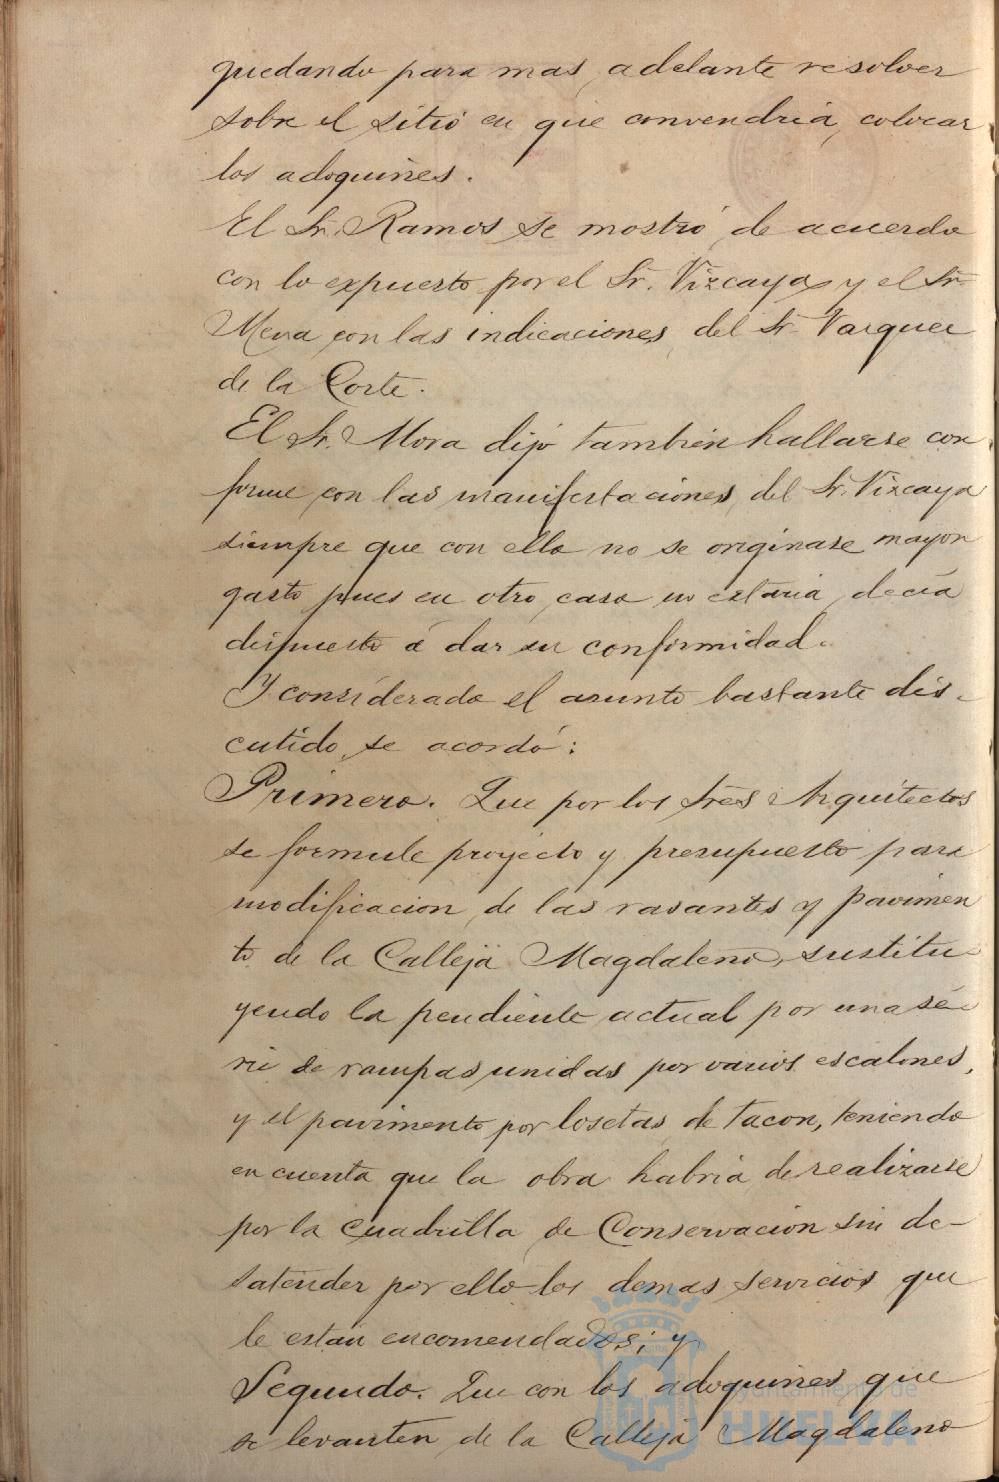 quedando para mas adelante resolver
sobre el sitio en que convendria colocar
los adoquines.
El Sr. Ramos se mostró de acuerdo
con lo expuesto por el Sr. Vizcaya y el Sr.
Mena con las indicaciones del Sr. Vazquez
de la Corte.
El Sr. Mora dijo tambien hallarse con
forme con las manifestaciones del Sr. Vizcaya
siempre que con ello no se originase mayor
gasto pues en otro caso no estaria, decia
dispuesto á dar su conformidad.
Y considerado el asunto bastante dis-
cutido se acordó:
Primero. Que por los Sres Arquitectos
se formule proyecto y presupuesto para
modificacion de las rasantes y pavimen
to de la Calleja Magdaleno, sustitu-
yendo la pendiente actual por una sé-
rie de rampas unidas por varios escalones,
y el pavimento por losetas de tacon, teniendo
en cuenta que la obra habria de realizarse
por la Cuadrilla de Conservacion sin de-
satender por ello los demas servicios que
le estan encomendados; y
Segundo. Que con los adoquines que
se levanten de la Calleja Magdaleno
Ayuntamiento de
HUELVA